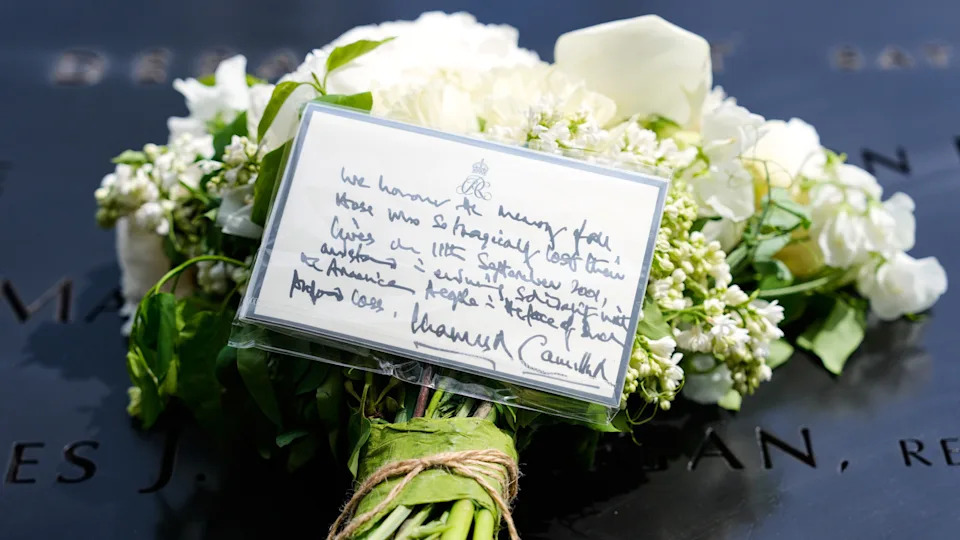 We honour the memory of all
those who so tragically lost their
lives on 11th September 2001,
and stand in enduring solidarity with
the American People in the face of such
profound loss.
Charles R Camilla R
ES J.
GAN, RE